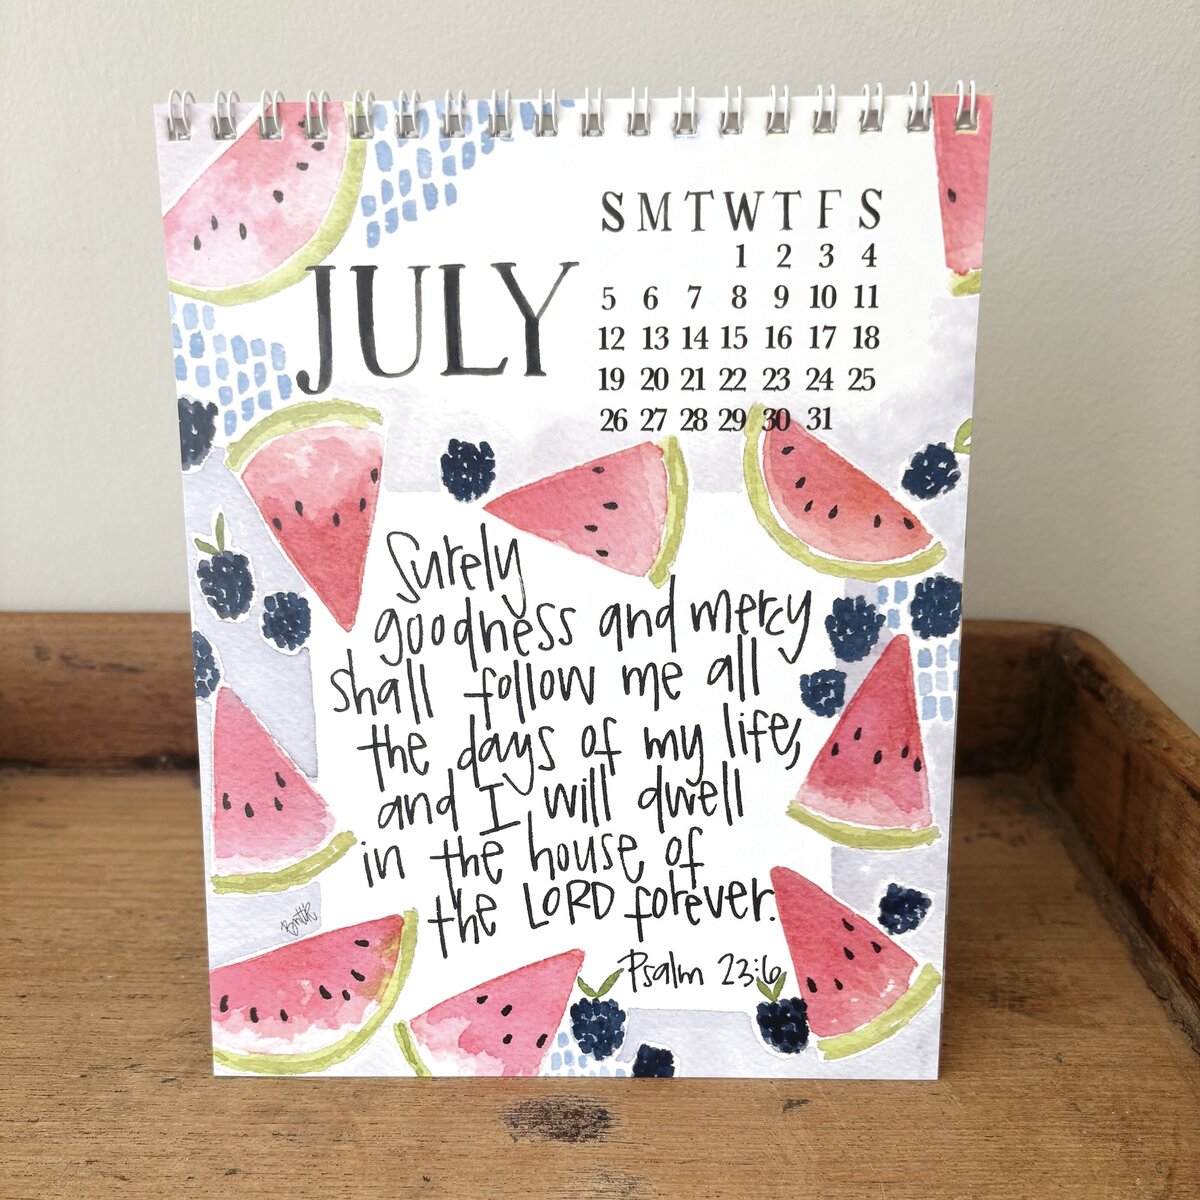 S M T W T F S
JULY
1 2 3 4
5 6 7 8 9 10 11
12 13 14 15 16 17 18
19 20 21 22 23 24 25
26 27 28 29 30 31
Surely
goodness and mercy
shall follow me all
the days of my life,
and I will dwell
in the house of
the LORD forever.
Psalm 23:6